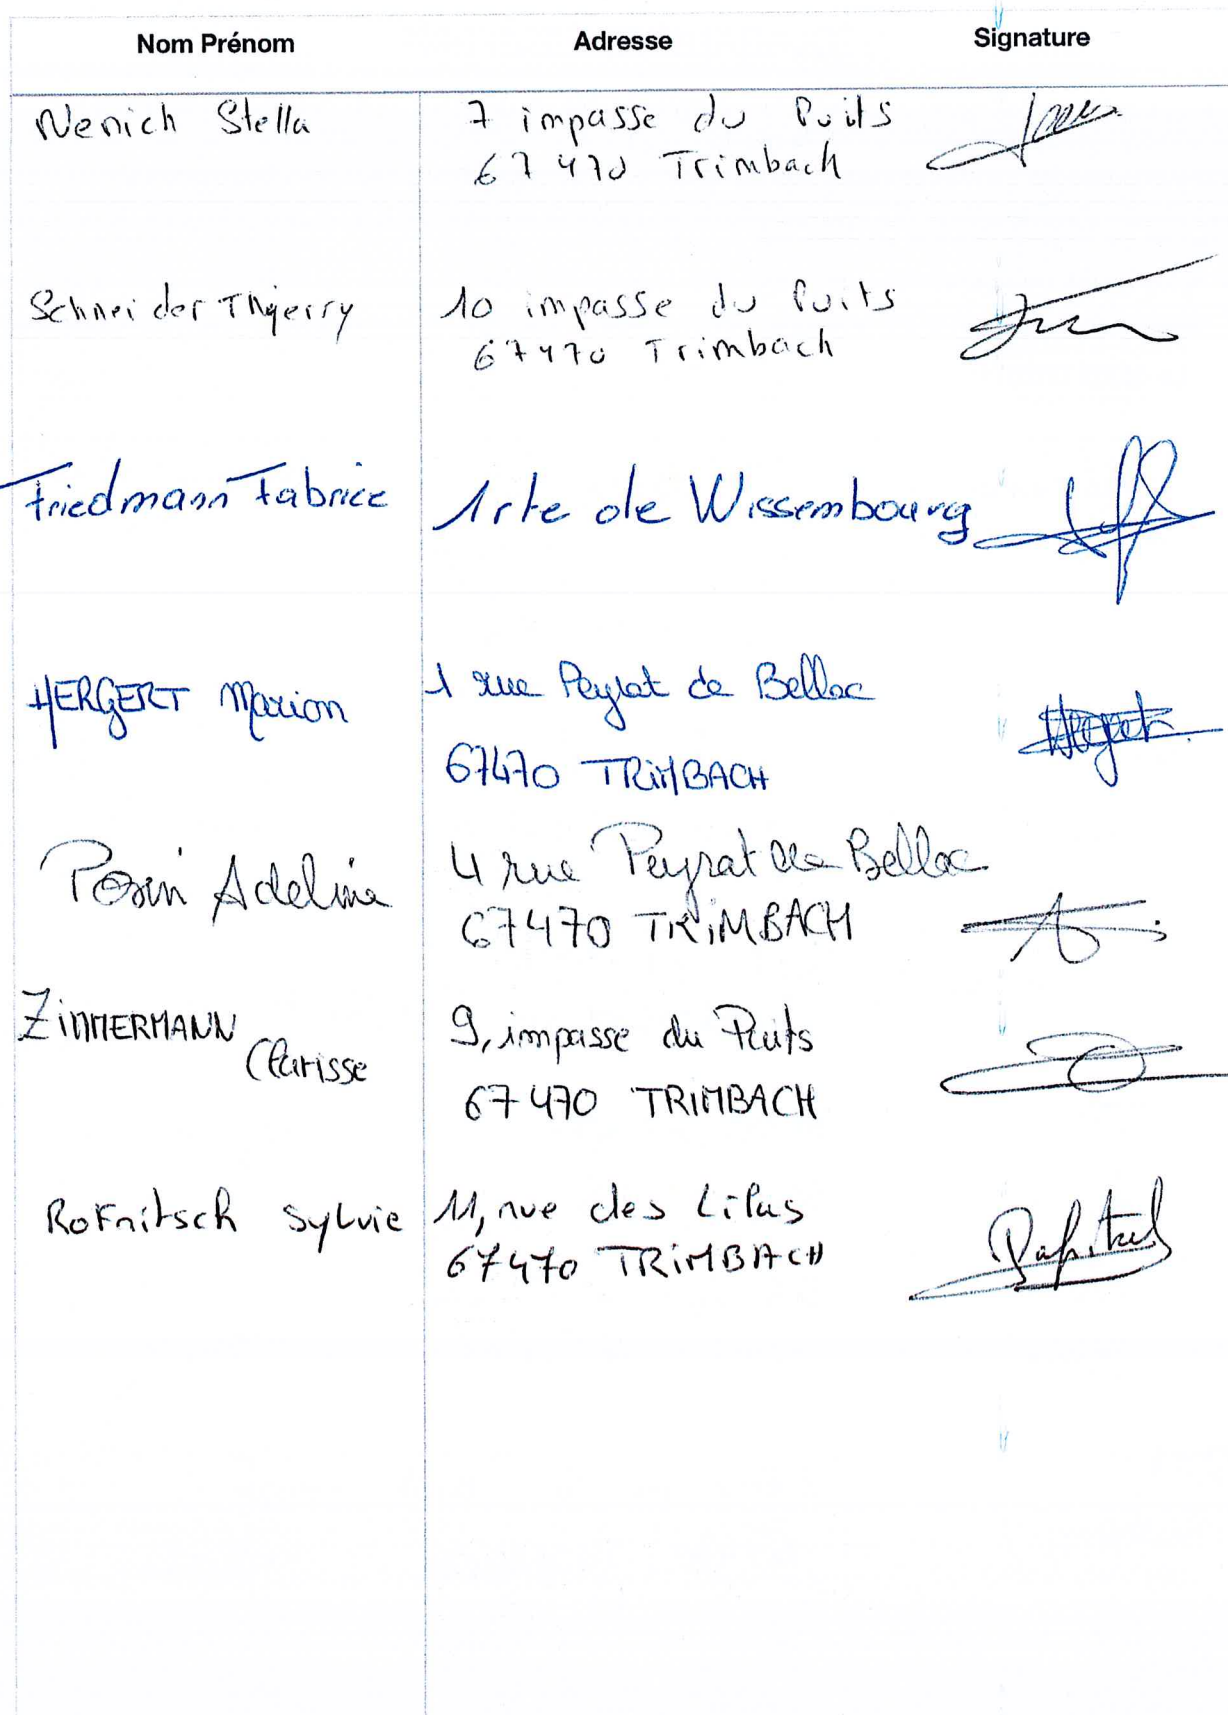 Nom Prénom Adresse Signature
Nenich Stella 7 impasse du Puits
67470 Trimbach
Schneider Thierry 10 impasse du Puits
67470 Trimbach
Friedmann Fabrice 1 rte de Wissembourg
HERGERT Marion 1 rue Peyrat de Bellac
67470 TRiMBACH
Adeline 4 rue Peyrat de Bellac
67470 TRiMBACH
ZiMMERMANN 9, impasse du Puits
Clarisse
67470 TRIMBACH
Sylvie 11, rue des Lilas
67470 TRiMBACH